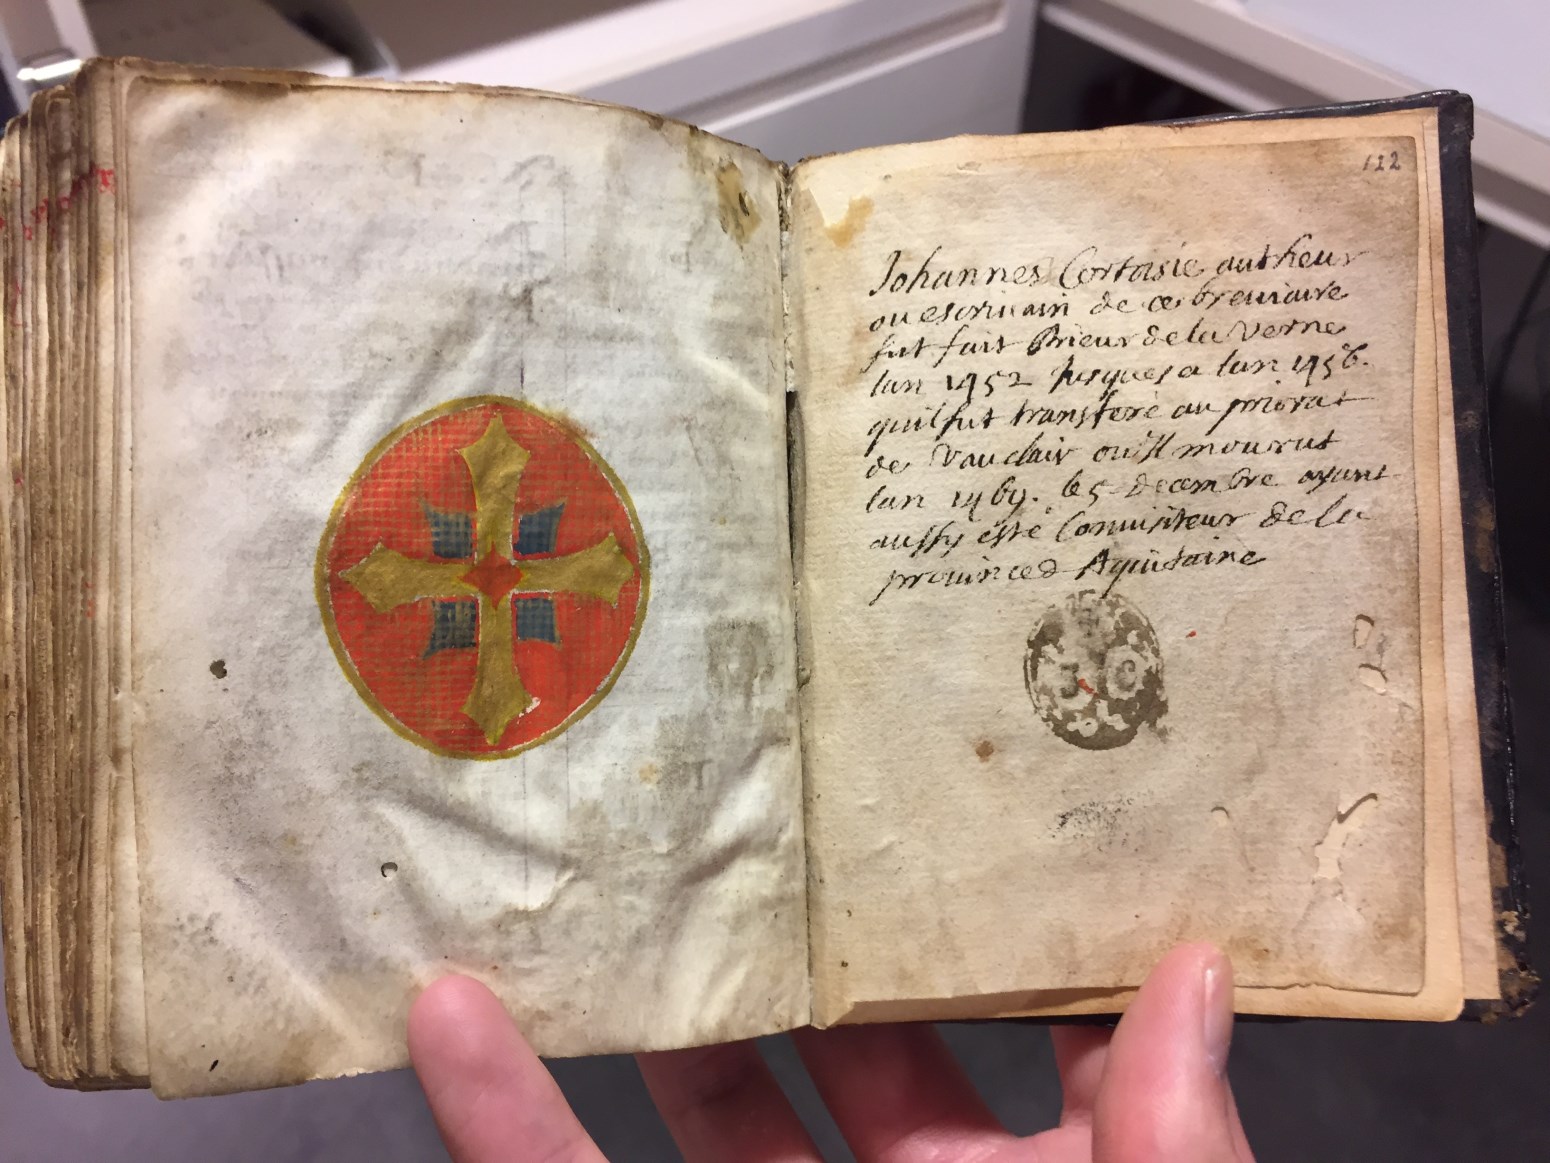 122
Johannes Cortoisie autheur
ou escriuain de ce breuiaire
fut fait Prieur de la Verne
lan 1452 Jusques a lan 1456.
quil fut transferé au priorat
de Vauclair ou Il mourut
lan 1469. le 5 decembre ayant
aussy esté Conuisiteur de la
prouince d Aquitaine
J C